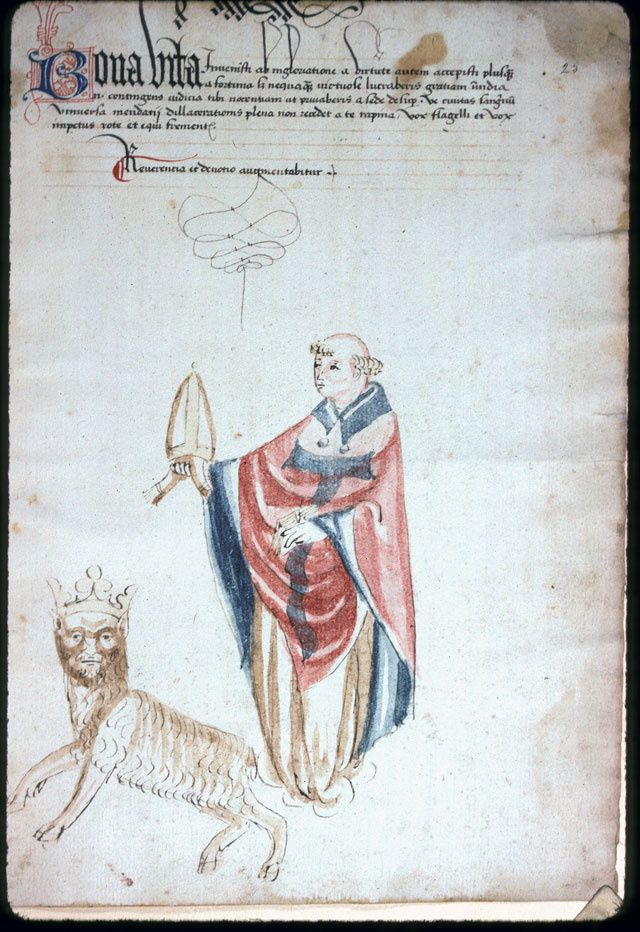 25
Bona vita Invenisti ab inglovatione a virtute autem accepisti plusq̃
a fortuna si nequaq̃ virtuose lucraberis gratiam
n contingens iudicia tibi nocentium ut privaberis a sede Ve civitas
Universa mendatii dillacerationis plena non recedet a te rapina vox flagelli et vox
impetus rote et equi frementꝭ
Reverencia et devotio augmentabitur